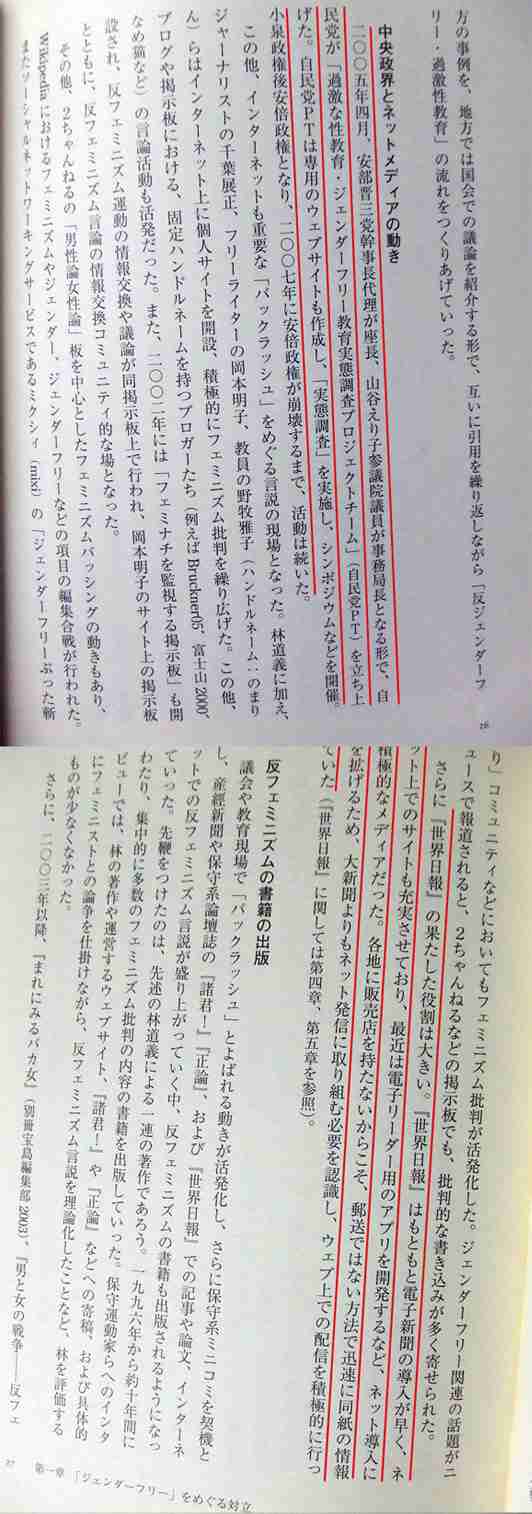 方の事例を、地方では国会での議論を紹介する形で、互いに引用を繰り返しながら「反ジェンダーフ
リー・過激性教育」の流れをつくりあげていった。
中央政界とネットメディアの動き
二〇〇五年四月、安部晋三党幹事長代理が座長、山谷えり子参議院議員が事務局長となる形で、自
民党が「過激な性教育・ジェンダーフリー教育実態調査プロジェクトチーム」(自民党PT)を立ち上
げた。自民党PTは専用のウェブサイトも作成し、「実態調査」を実施し、シンポジウムなどを開催。
小泉政権後安倍政権となり、二〇〇七年に安倍政権が崩壊するまで、活動は続いた。
この他、インターネットも重要な「バックラッシュ」をめぐる言説の現場となった。林道義に加え、
ジャーナリストの千葉展正、フリーライターの岡本明子、教員の野牧雅子(ハンドルネーム:のまり
ん)らはインターネット上に個人サイトを開設、積極的にフェミニズム批判を繰り広げた。この他、
ブログや掲示板における、固定ハンドルネームを持つブロガーたち(例えばBruckner05、富士山2000、
なめ猫など)の言論活動も活発だった。また、二〇〇二年には「フェミナチを監視する掲示板」も開
設され、反フェミニズム運動の情報交換や議論が同掲示板上で行われ、岡本明子のサイト上の掲示板
とともに、反フェミニズム言論の情報交換コミュニティ的な場となった。
その他、2ちゃんねるの「男性論女性論」板を中心としたフェミニズムバッシングの動きもあり、
Wikipediaにおけるフェミニズムやジェンダー、ジェンダーフリーなどの項目の編集合戦が行われた。
またソーシャルネットワーキングサービスであるミクシィ(mixi)の「ジェンダーフリーぶった斬
26
り」コミュニティなどにおいてもフェミニズム批判が活発化した。ジェンダーフリー関連の話題がニ
ュースで報道されると、2ちゃんねるなどの掲示板でも、批判的な書き込みが多く寄せられた。
さらに『世界日報』の果たした役割は大きい。『世界日報』はもともと電子新聞の導入が早く、ネ
ット上でのサイトも充実させており、最近は電子リーダー用のアプリを開発するなど、ネット導入に
積極的なメディアだった。各地に販売店を持たないからこそ、郵送ではない方法で迅速に同紙の情報
を拡げるため、大新聞よりもネット発信に取り組む必要を認識し、ウェブ上での配信を積極的に行っ
ていた(『世界日報』に関しては第四章、第五章を参照)。
反フェミニズムの書籍の出版
議会や教育現場で「バックラッシュ」とよばれる動きが活発化し、さらに保守系ミニコミを契機と
し、産經新聞や保守系論壇誌の『諸君!』『正論』、および『世界日報』での記事や論文、インターネ
ットでの反フェミニズム言説が盛り上がっていく中、反フェミニズムの書籍も出版されるようになっ
ていった。先鞭をつけたのは、先述の林道義による一連の著作であろう。一九九六年から約十年間に
わたり、集中的に多数のフェミニズム批判の内容の書籍を出版していった。保守運動家らへのインタ
ビューでは、林の著作や運営するウェブサイト、『諸君!』や『正論』などへの寄稿、および具体的
にフェミニストとの論争を仕掛けながら、反フェミニズム言説を理論化したことなど、林を評価する
ものが少なくなかった。
さらに、二〇〇三年以降、『まれにみるバカ女』(別冊宝島編集部 2003)、『男と女の戦争――反フェ
27 第一章 「ジェンダーフリー」をめぐる対立